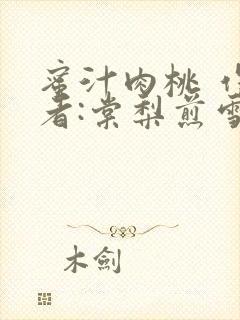 蜜汁肉桃 作
者:棠梨煎雪
木劍